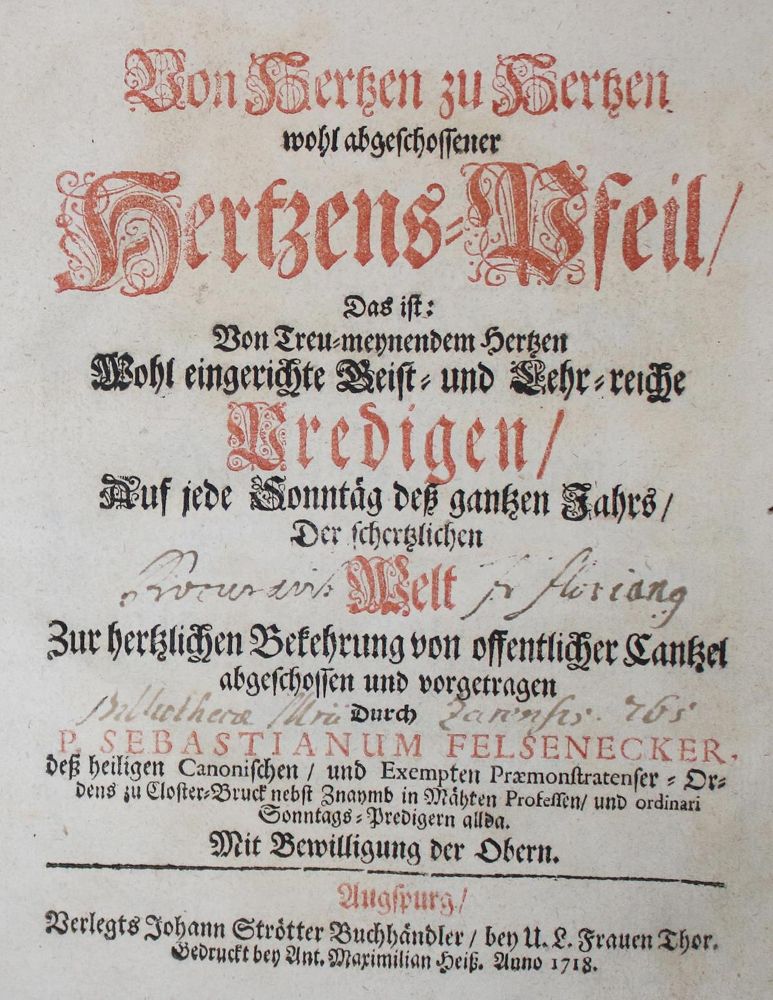 Von Hertzen zu Hertzen
wohl abgeschossener
Hertzens-Pfeil/
Das ist:
Von Treu-meynendem Hertzen
Wohl eingerichte Geist- und Lehr-reiche
Predigen/
Auf jede Sonntäg deß gantzen Jahrs/
Der schertzlichen
Welt
Floriang
Zur hertzlichen Bekehrung von offentlicher Cantzel
abgeschossen und vorgetragen
Durch
Bibliothecæ 765
P. SEBASTIANUM FELSENECKER,
deß heiligen Canonischen/ und Exempten Præmonstratenser-Or-
dens zu Closter-Bruck nebst Znaymb in Mähren Professen/ und ordinari
Sonntags-Predigern allda.
Mit Bewilligung der Obern.
Augspurg/
Verlegts Johann Strötter Buchhändler/ bey U. L. Frauen Thor.
Gedruckt bey Ant. Maximilian Heiß. Anno 1718.